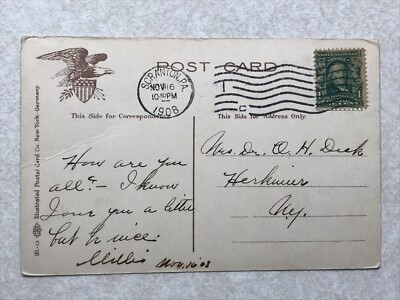 POST CARD
SCRANTON, PA.
NOV 16
1908
1
C
This Side for Correspondence
This Side for Address Only.
Illustrated Postal Card Co. New York-Germany.
How are you
all? - I know
I our you a little
but be nice.
Millis
Nov. 16 08
Mrs. Dr. A. H. Dock
Herkimer
N.y.